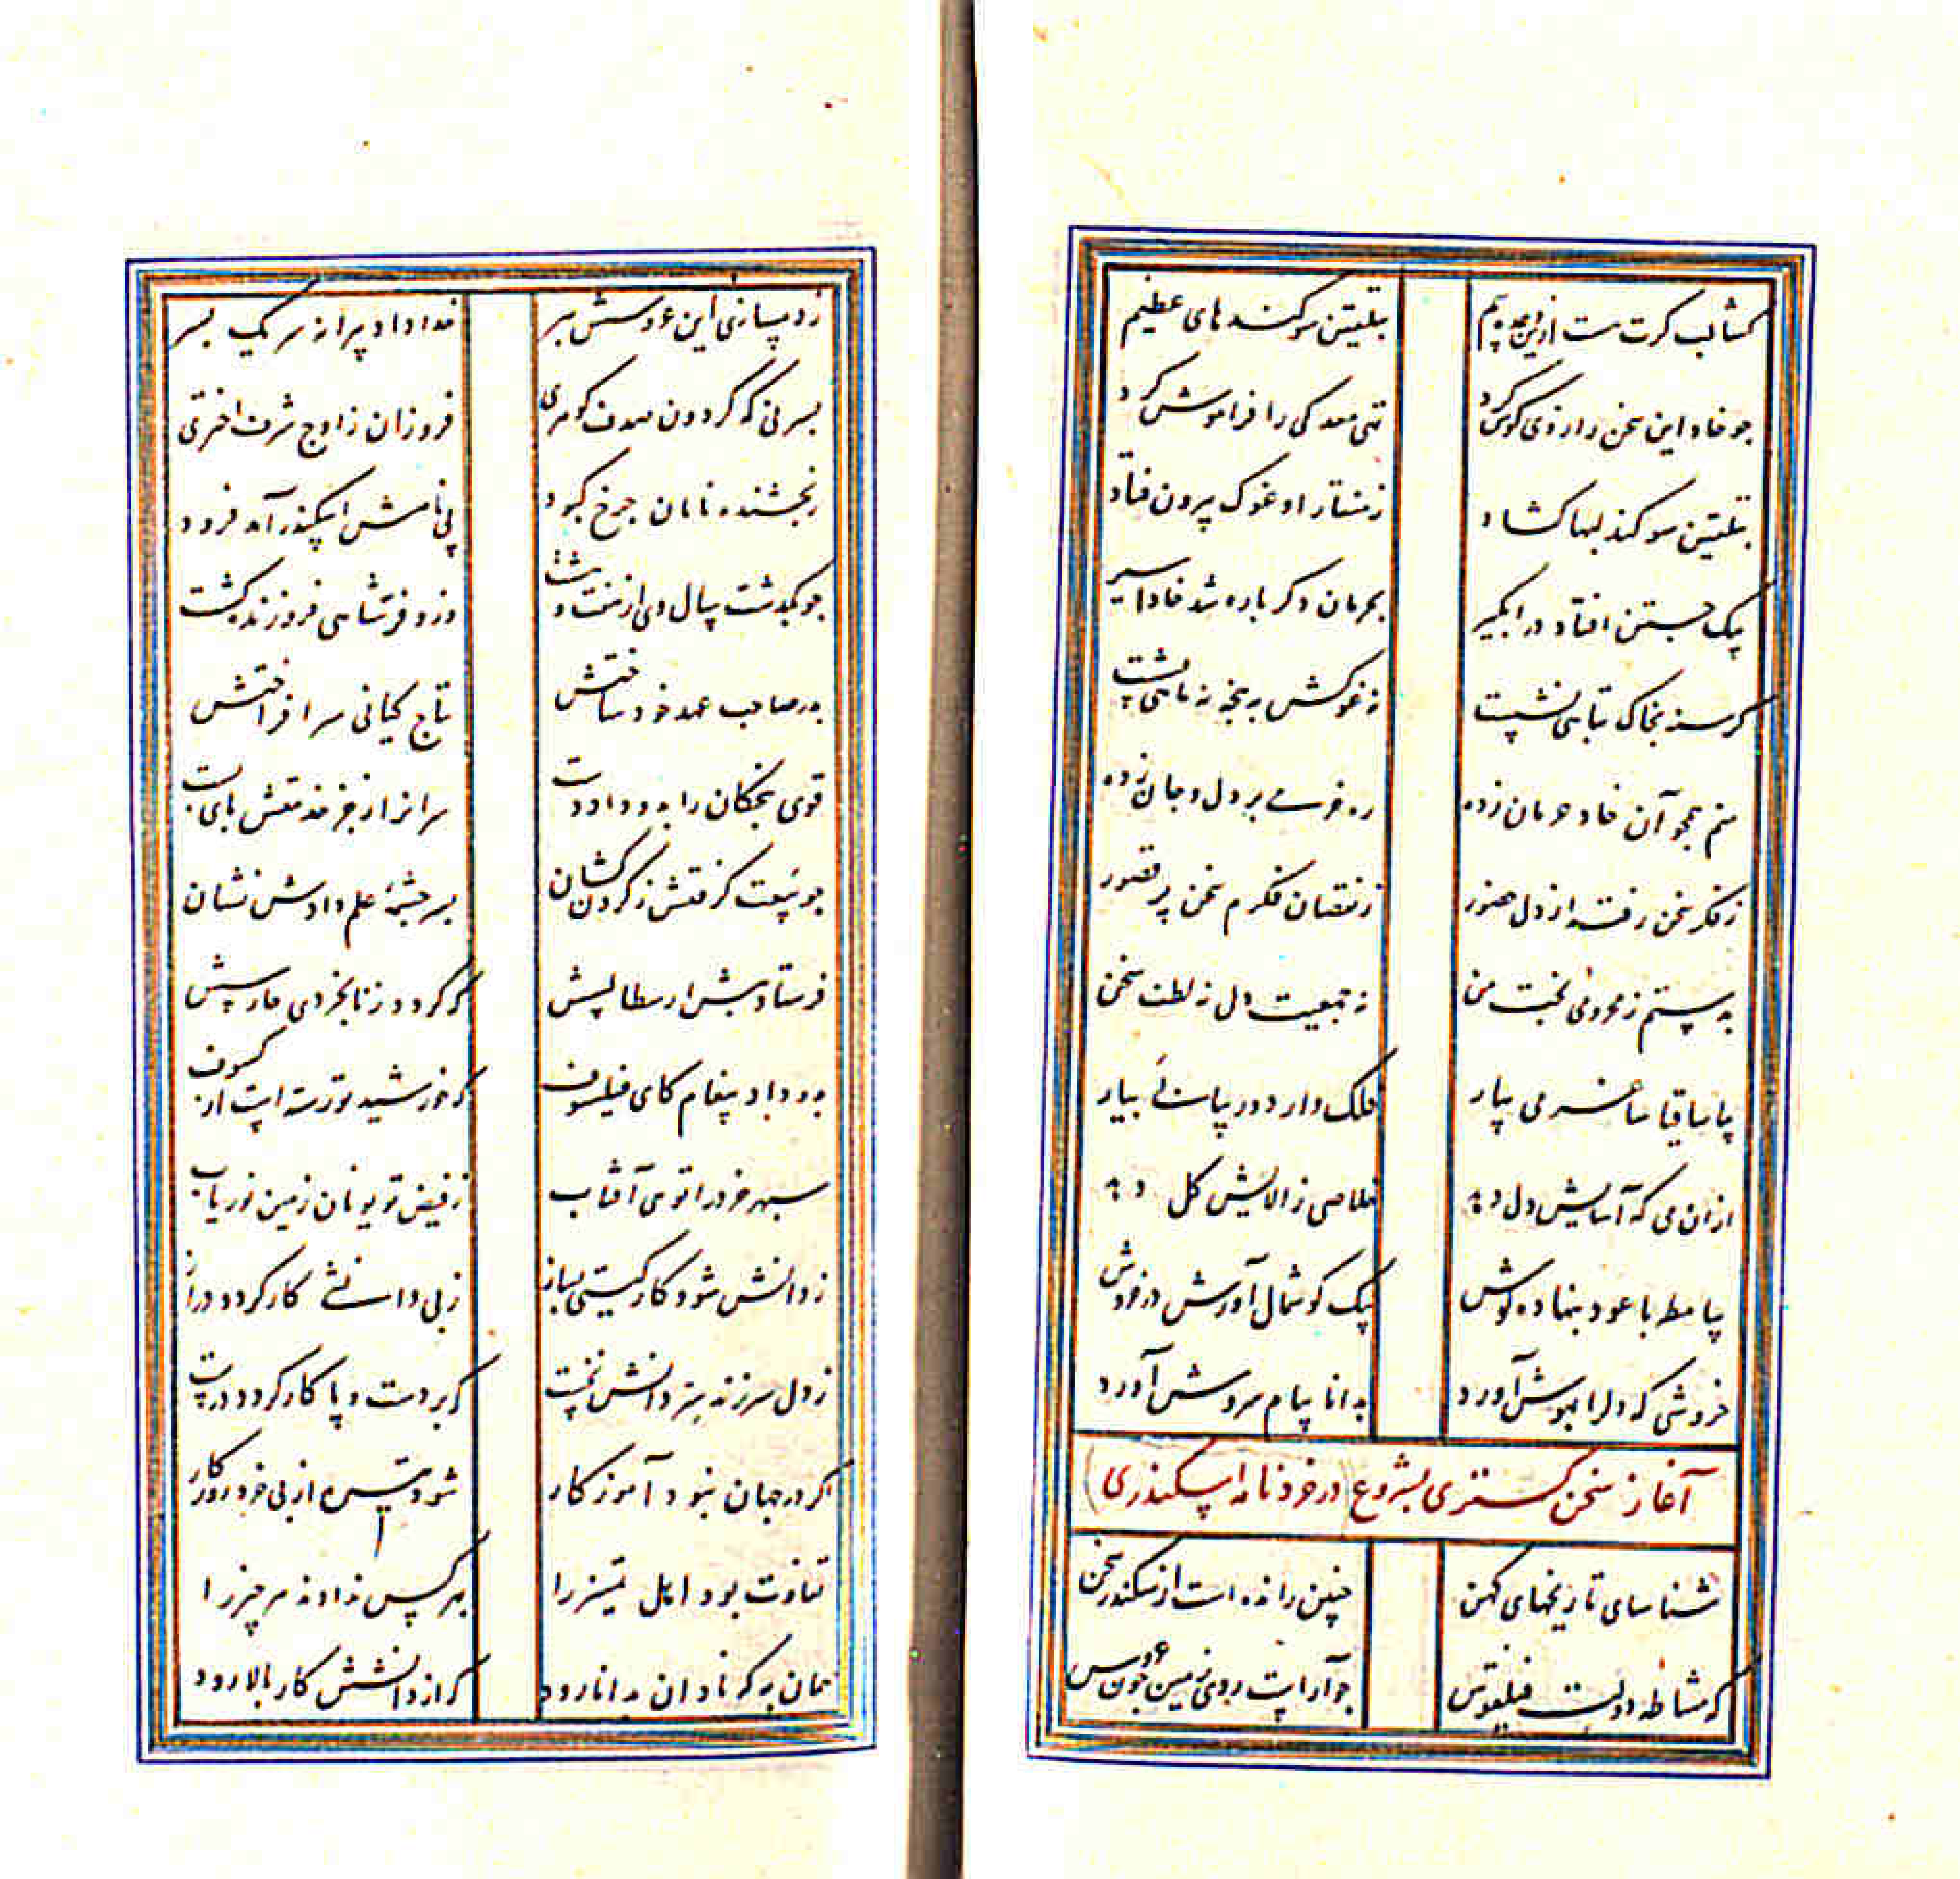 گشا لب گرت هست ازین وعده بیم بتلقین سوگندهای عظیم
چو خاد این سخن را ز وی گوش کرد تهی معدگی را فراموش کرد
بتلقین سوگند لبها گشاد ز منقار او غوک بیرون فتاد
بیک جستن افتاد در آبگیر بحرمان دگر باره شد خاد اسیر
گرسنه بخاک تباهی نشست نه غوکش به پنجه نه ماهی بشست
منم همچو آن خاد حرمان زده ره خرمی بر دل و جان زده
ز فکر سخن رفته از دل حضور ز نقصان فکرم سخن پر قصور
بدستم ز محرومی بخت من نه جمعیت دل نه لطف سخن
بیا ساقیا ساغر می بیار فلک وار دور پیاپی بیار
ازان می که آسایش دل دهد خلاصی ز آلایش گل دهد
بیا مطربا عود بنهاده گوش بیک گوشمال آورش در خروش
خروشی که دلرا بهوش آورد بدانا پیام سروش آورد
آغاز سخن گستری بشروع در خردنامه اسکندری
شناسای تاریخهای کهن چنین رانده است از سکندر سخن
که مشاطه دولت فیلقوس چو آراست روی زمین چون عروس
ز دمسازی این عروسش ببر خدا داد پیرانه سر یک پسر
پسر نی که گردون صدف گوهری فروزان ز اوج شرف اختری
ز بخشنده نامان چرخ کبود پی نامش اسکندر آمد فرود
چو بگذشت سال وی از هفت و هشت وزو فر شاهی فروزنده گشت
پدر صاحب عهد خود ساختش بتاج کیانی سر افراختش
قوی پنجگان را بدو داد دست سرانرا ز جز خدمتش پای بست
چو بیعت گرفتش ز گردن کشان بسرچشمه علم دادش نشان
فرستاد پیش ارسطالیسش که گردد ز نابخردی حارسش
بدو داد پیغام کای فیلسوف که خورشید تو رسته است از کسوف
سپهر خرد را توی آفتاب ز فیض تو یونان زمین نوریاب
ز دانش شود کار گیتی بساز ز بی دانشی کار گردد دراز
ز دل سر زند سر دانش نخست که بر دست و پا کار گردد درست
اگر در جهان نبود آموزگار شود تیره از بی خردی روزگار
تفاوت بود اهل تمییز را بهر کس ندادند هر چیز را
همان به که نادان بدانا رود که از دانشش کار بالا رود